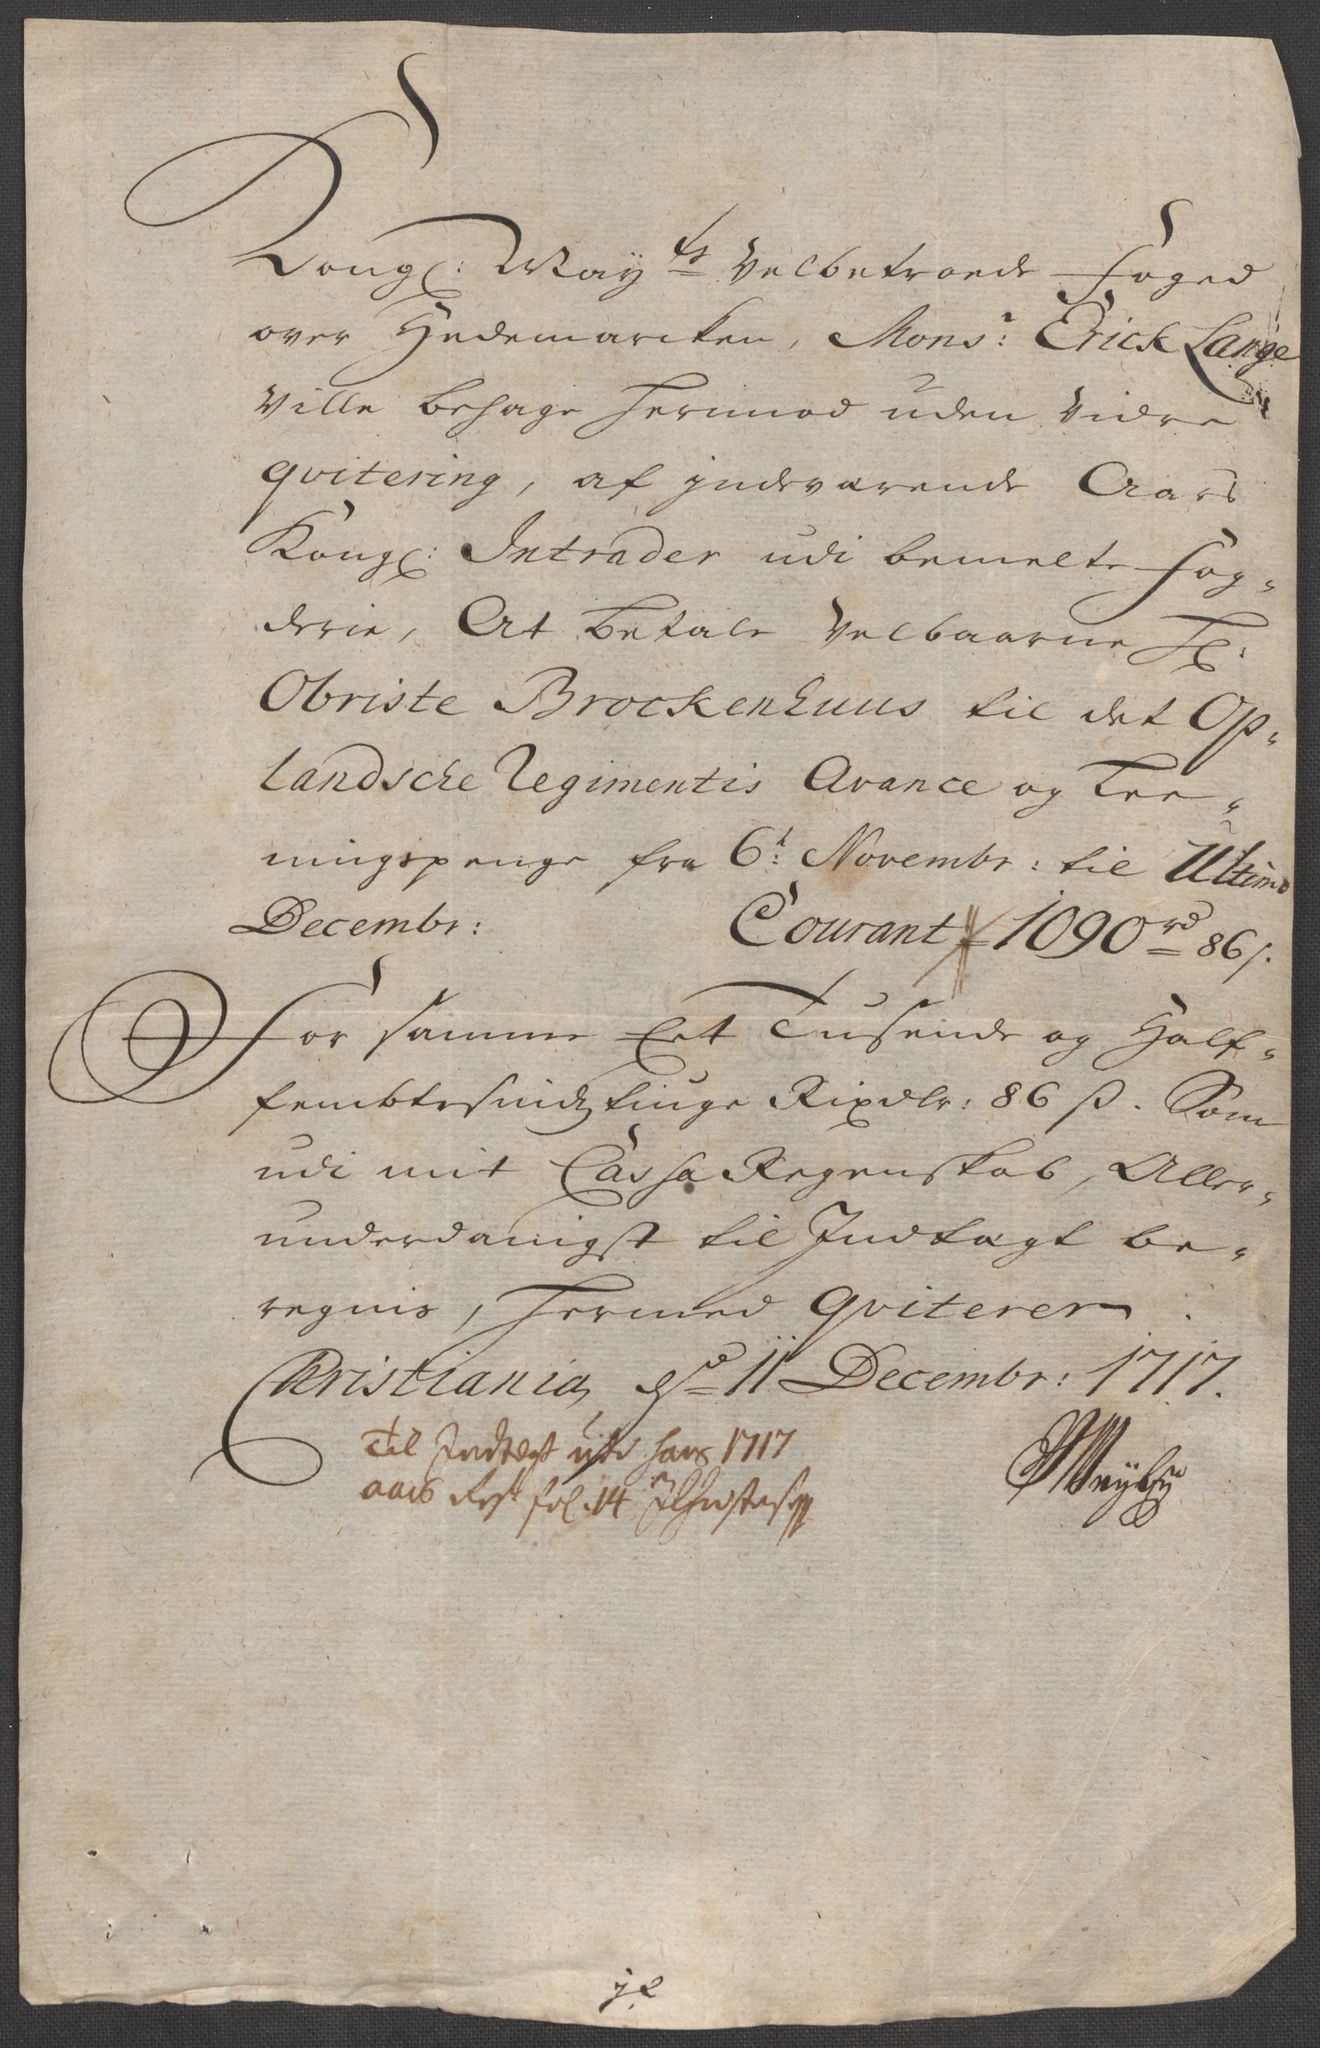 Kongl: May:ts Velbetroede Foged
over Hedemarcken, Mons:r Erick Lange
Ville behage hermod uden Vidre
qvitering, af indeværende Aars
Kongl: Intrader udi bemelte Fog-
derie, At betale Velbaarne Hr:
Obriste Brockenhuus til det Op-
landsche Regimentis Avance og Tee-
ningspenge fra 6t: Novembr: til Ultimo
Decembr: Courant 1090 rd 86 s.
For samme Eet Tusende og Half-
fembtesindztiuge Rixdlr: 86 ß. Som
udi mit Cassa Regenskab, Aller-
underdanigst til Indtægt be-
regnis, hermed qviterer.
Christiania, d. 11 Decembr: 1717.
Til Indtegt udi hans 1717
aars Regsk fol: 14